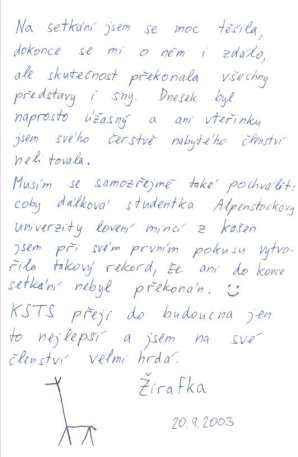 Na setkání jsem se moc těšila,
dokonce se mi o něm i zdálo,
ale skutečnost překonala všechny
představy i sny. Dnešek byl
naprosto úžasný a ani vteřinku
jsem svého čerstvě nabytého členství
nelitovala.
Musím se samozřejmě také pochválit:
coby dálková studentka Alpenstockovy
univerzity lovení mincí z kašen
jsem při svém prvním pokusu vytvo-
řila takový rekord, že ani do konce
setkání nebyl překonán. :)
KSTS přeji do budoucna jen
to nejlepší a jsem na své
členství velmi hrdá.
Žirafka
20.9.2003